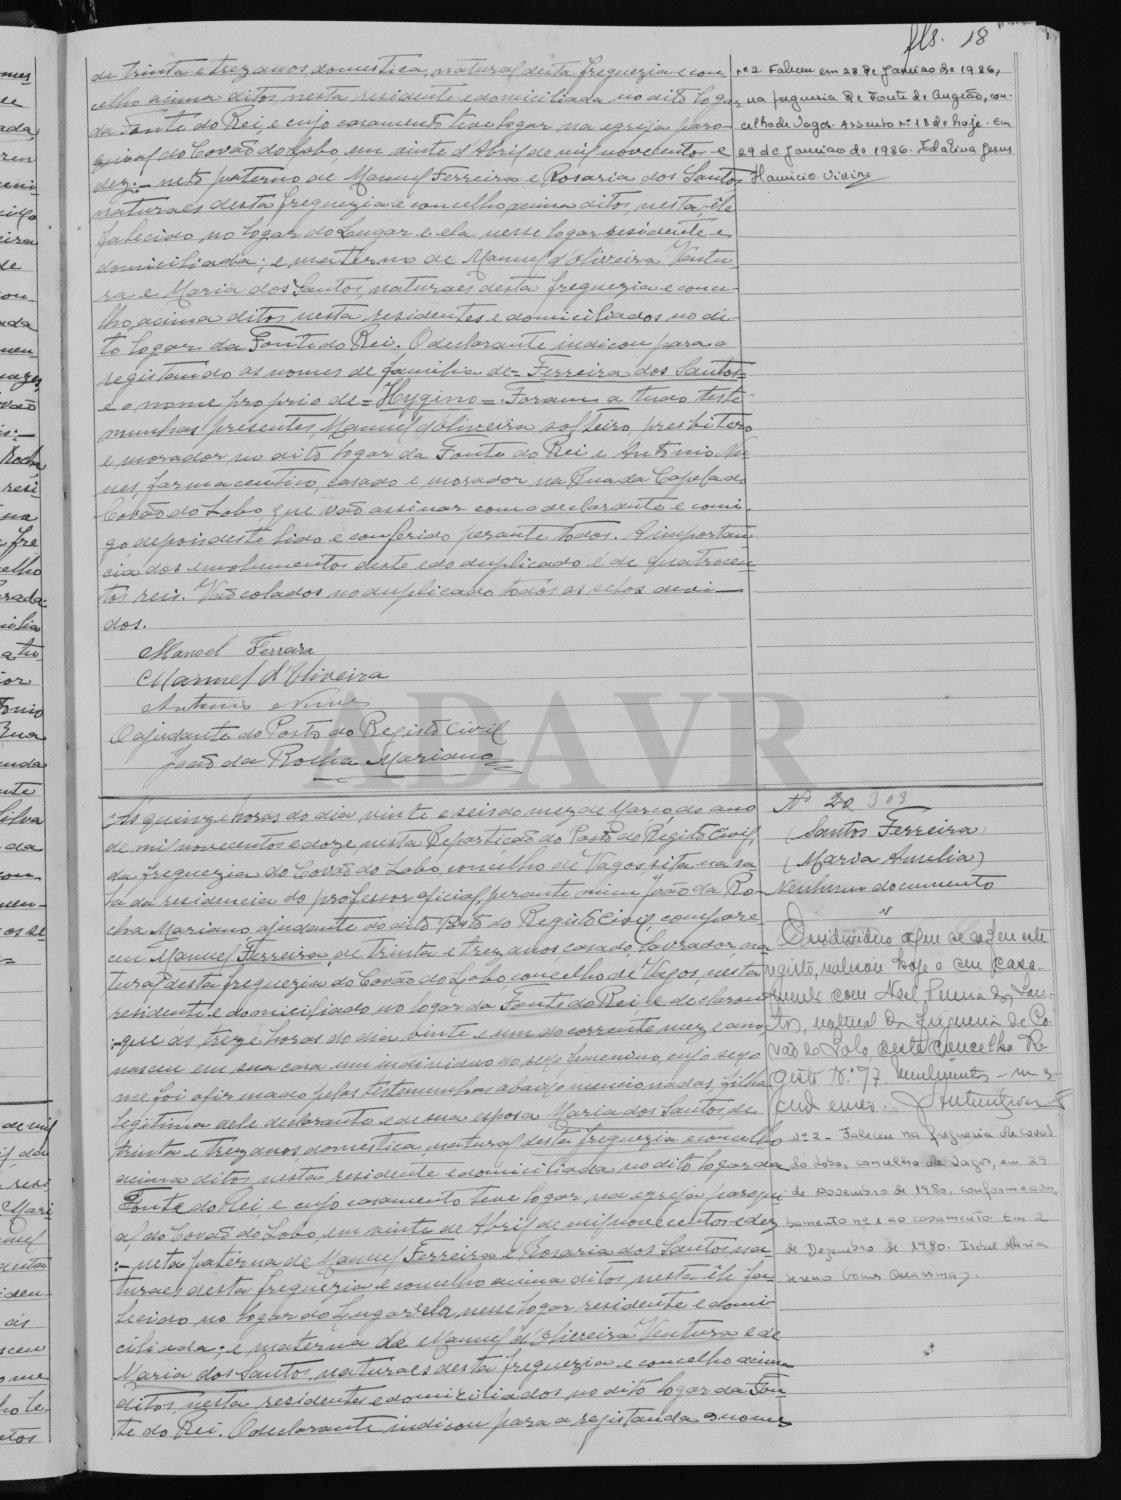 fls. 18
de trinta e trez anos, domestica, natural desta freguezia e con
celho acima ditos, nesta residente e domiciliada no dito logar
da Fonte do Rei, e cujo casamento teve logar na egreja paro-
quial do Covão do Lobo, em vinte d'Abril de mil novecentos e
dez:- neto paterno de Manuel Ferreira e Rosaria dos Santos
naturaes desta freguezia e concelho acima ditos, nesta, êle
falecido, no logar do Lugar e ela nesse logar residente e
domiciliada; e materno de Manuel d'Oliveira Ventu-
ra e Maria dos Santos, naturaes desta freguezia e conce-
lho acima ditos, nesta residentes e domiciliados no di-
to logar da Fonte do Rei. O declarante indicou para o
registando os nomes de familia de = Ferreira dos Santos =
e o nome proprio de = Hygino =. Foram a tudo teste-
munhas presentes, Manuel d'Oliveira, solteiro, presbitero
e morador no dito logar da Fonte do Rei e Antonio Nu
nes, farmaceutico, casado e morador na Rua da Capela do
Covão do Lobo, que vão assinar com o declarante e comi-
go depois deste lido e conferido perante todos. A importan-
cia dos emolumentos deste e do duplicado é de quatrocen
tos reis. Vão colados no duplicado todos os selos devi-
dos.
Manoel Ferreira
Manuel d'Oliveira
Antonio Nunes
O ajudante do Posto do Registo Civil
João da Rocha Mariano
nº 2. Faleceu em 28 de Janeiro de 1986,
na freguesia de Fonte de Angeão, con-
celho de Vagos. Assento nº 18 de hoje. Em
29 de Janeiro de 1986. Idalina Jesus
ADAVR
Ás quinze horas do dia vinte e seis do mez de Março do ano
de mil novecentos e doze nesta Repartição do Posto do Registo Civil,
da freguezia do Covão do Lobo, concelho de Vagos sita na sa
la da residencia do professor oficial, perante mim João da Ro-
cha Mariano ajudante do dito Posto do Registo Civil, compare-
ceu Manuel Ferreira, de trinta e trez anos casado, lavrador, na
tural desta freguezia do Covão do Lobo, concelho de Vagos, nesta
residente e domiciliado, no logar da Fonte do Rei, e declarou
:- que ás treze horas do dia vinte e um do corrente mez e ano,
nasceu em sua casa um individuo do sexo femenino, cujo sexo
me foi afirmado pelas testemunhas abaixo mencionadas, filha
legitima dele declarante e de sua esposa Maria dos Santos de
trinta e trez anos domestica, natural desta freguezia e concelho
acima ditos, nesta residente e domiciliada no dito logar da
Fonte do Rei, e cujo casamento teve logar, na egreja paroqui
al, do Covão do Lobo, em vinte de Abril de mil novecentos e dez
:- neta paterna de Manuel Ferreira e Rosaria dos Santos na-
turaes desta freguezia e concelho acima ditos, nesta êle fa-
lecido, no logar do Lugar e ela, nesse logar residente e domi-
ciliada; e materna de Manuel d'Oliveira Ventura e de
Maria dos Santos, naturaes desta freguezia e concelho acima
ditos, nésta residentes e domiciliados, no dito logar da Fon-
te do Rei. O declarante indicou para a registanda o nome
Nº 20 303
(Santos Ferreira)
(Maria Amelia)
Nenhum documento
O individuo a que se refere este
registo, realisou hoje o seu casa-
mento com Noel Ferreira dos San-
tos, natural da freguesia de Co-
vão do Lobo, deste concelho. Re-
gisto N.º 77.
nº 2 - Faleceu na freguesia de Covão
do Lobo, concelho de Vagos, em 29
de Novembro de 1980, conforme aver-
bamento nº 1 ao casamento. Em 2
de Dezembro de 1980. Isabel Maria